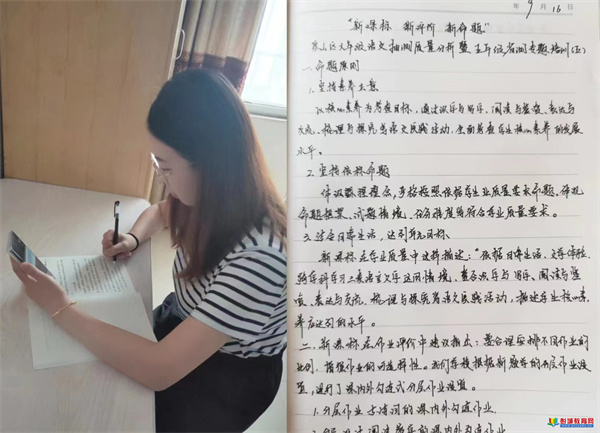 年 9 月 16 日
"新课标 新评价 新命题"
区六年级语文抽测质量分析暨五年级省测专题培训(五)
一、命题原则
1. 坚持素养立意
以核心素养为考查目标,通过识字与写字、阅读与鉴赏、表达与
交流、梳理与探究等语文实践活动,全面考查学生核心素养的发展
水平。
2. 坚持依标命题
理念,严格按照依据学业质量要求命题,保证
命题框架、试题情境、任务难度等符合学业质量要求。
3. 结合日常生活,达到育人目标
新课标在学业质量中这样描述:"依据日常生活、文学体验、
跨学科学习三类语言文字运用情境,整合识字与写字、阅读与鉴
赏、表达与交流、梳理与探究等语文实践活动,描述学业核心素
养应达到的水平。
二、新课标在作业评价中建议指出:要合理安排不同作业的
比例,增强作业的可选择性。我们学校根据新教学的分层作业设
置,进行了课内外勾连式分层作业设置。
1. 分层作业 古诗词的课内外勾连作业
课内外勾连作业
彭城教育网